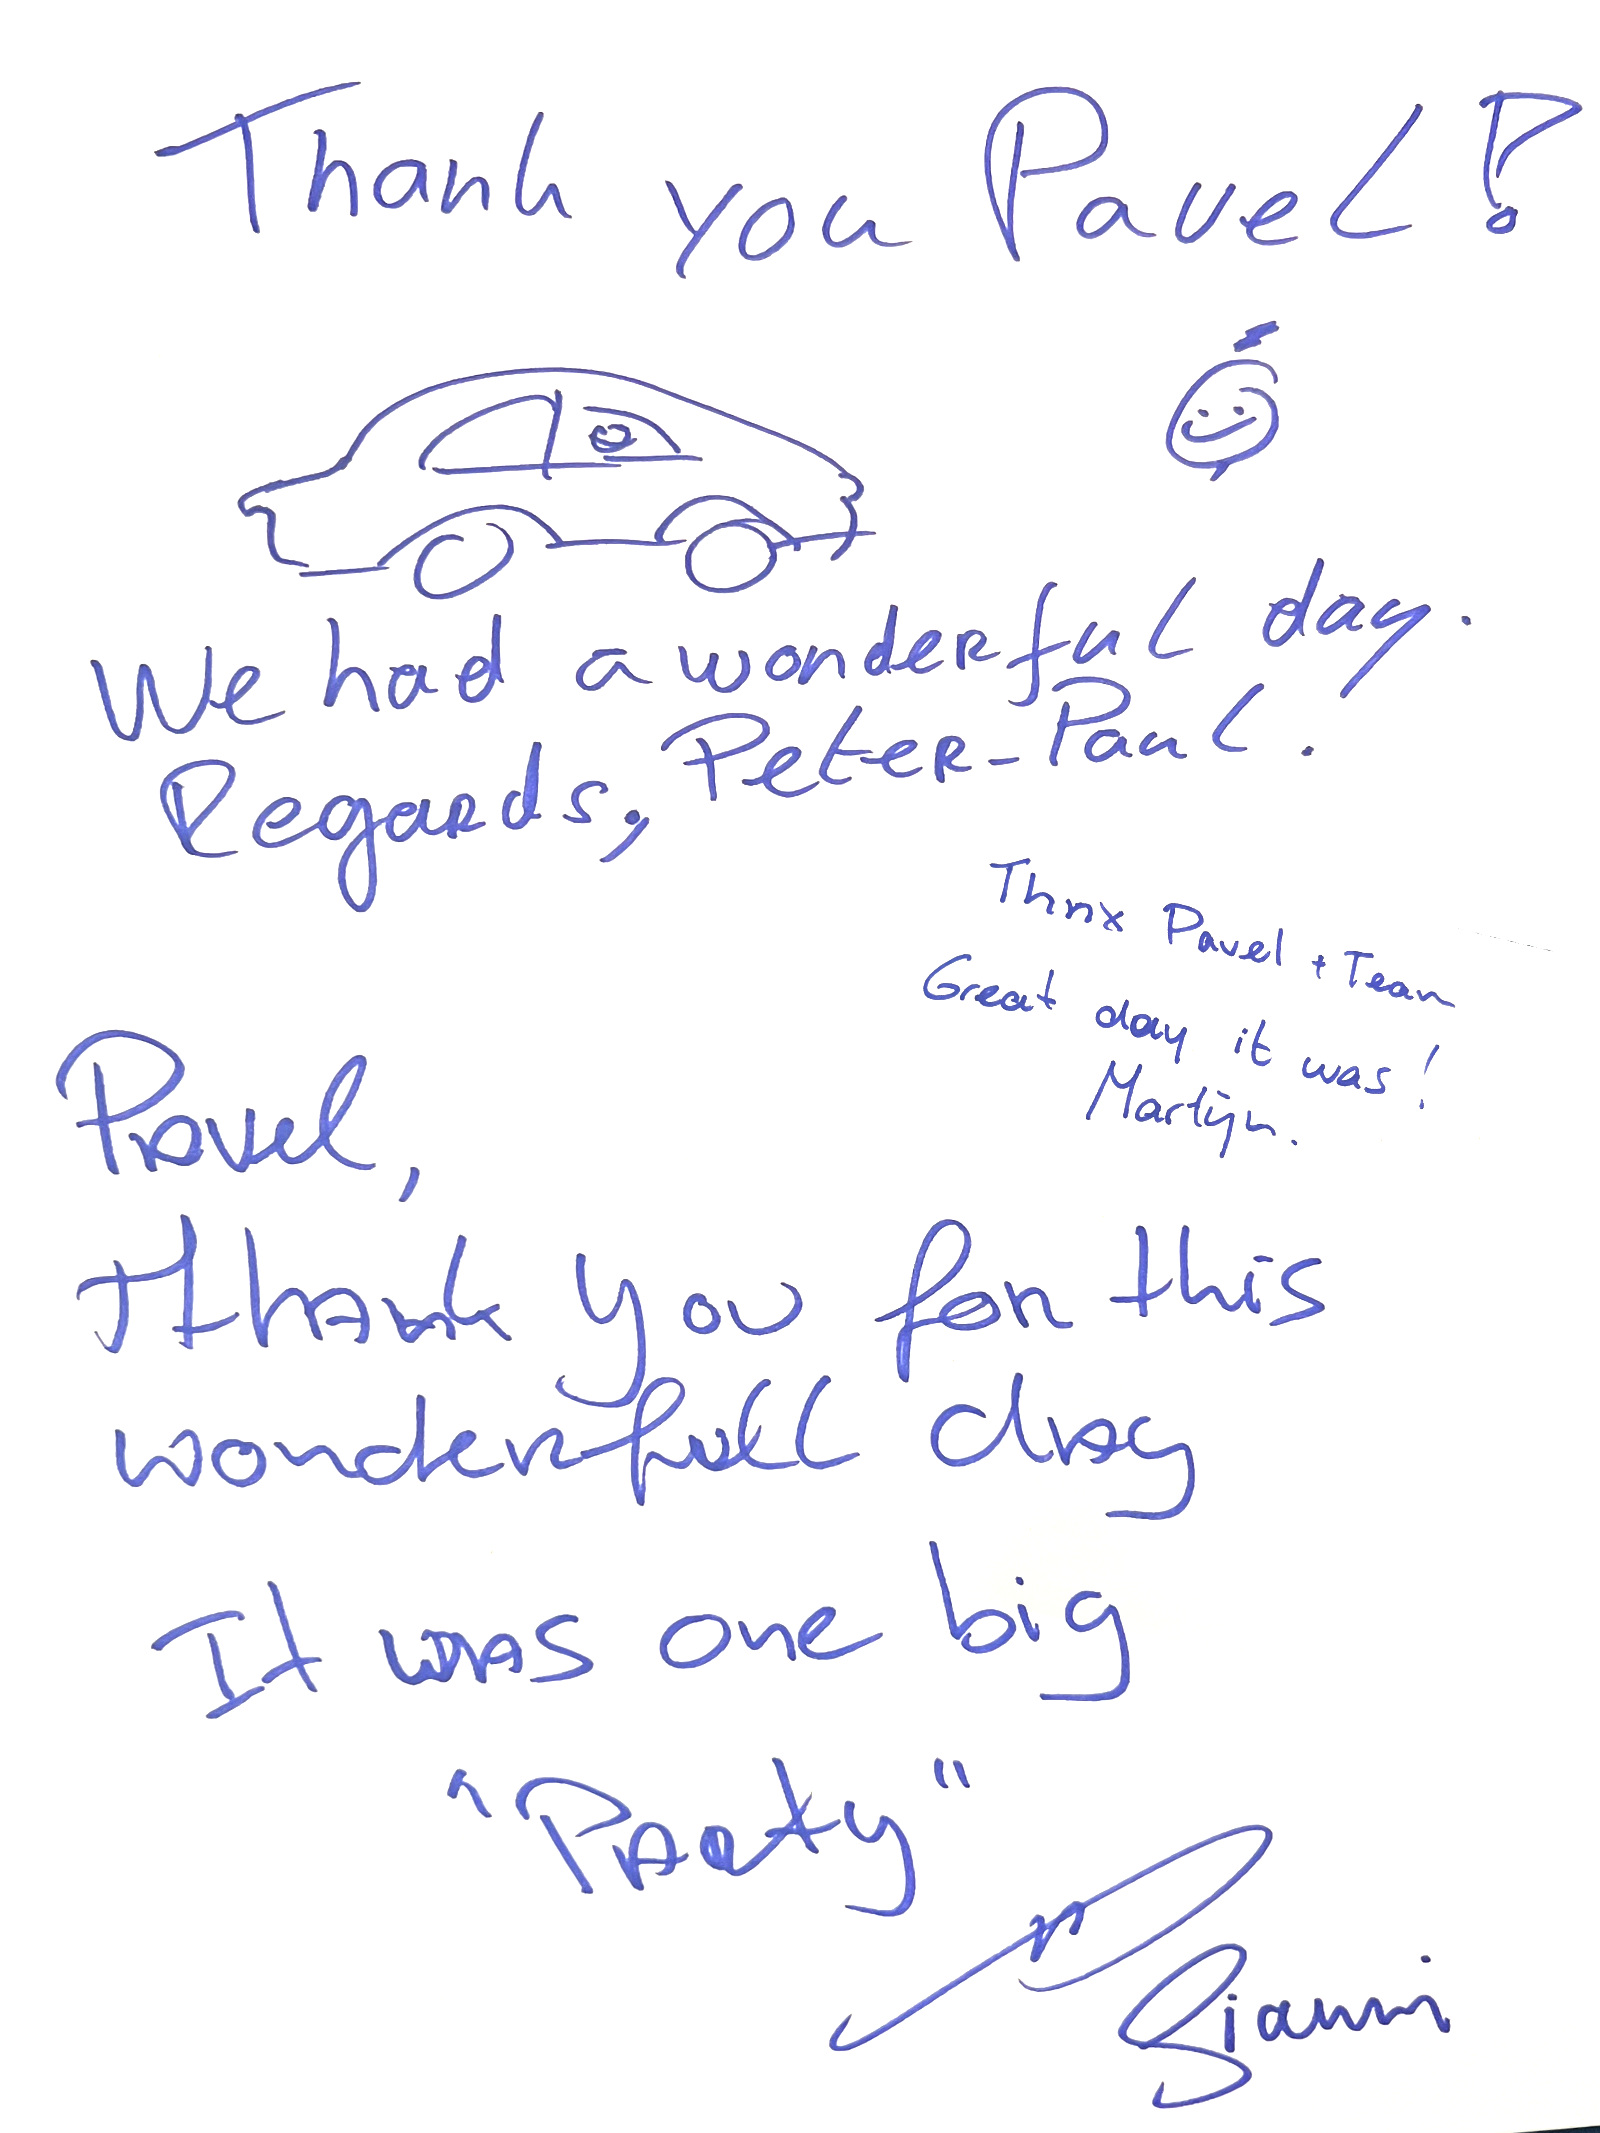 Thank you Pavel!
We had a wonderful day.
Regards, Peter-Paul.
Thnx Pavel + Team
Great day it was!
Martijn.
Pavel,
thank you for this
wonderfull day
It was one big
"Party"
Gianni